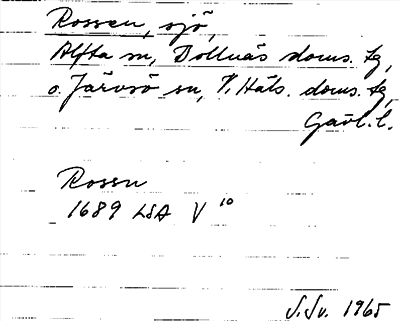 Rossen, sjö,
Alfta sn, Bollnäs doms. tg,
o. Järvsö sn, V. Häls. doms. tg,
Gävl. l.
Rossn
1689 LSA V 10
S. Sv. 1965